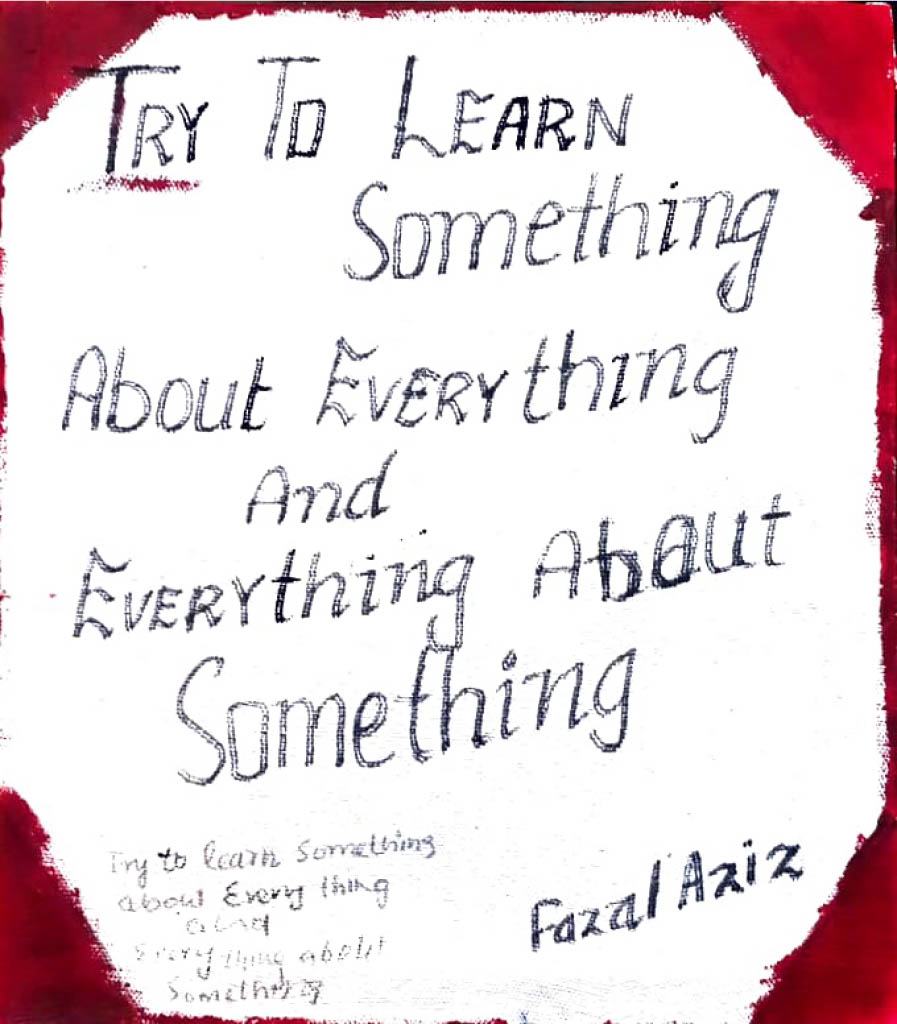 TRY TO LEARN
Something
About EVERYthing
And
EVERYthing About
Something
Try to learn Something
about Every thing
and
Every thing about
Something
Fazal Aziz